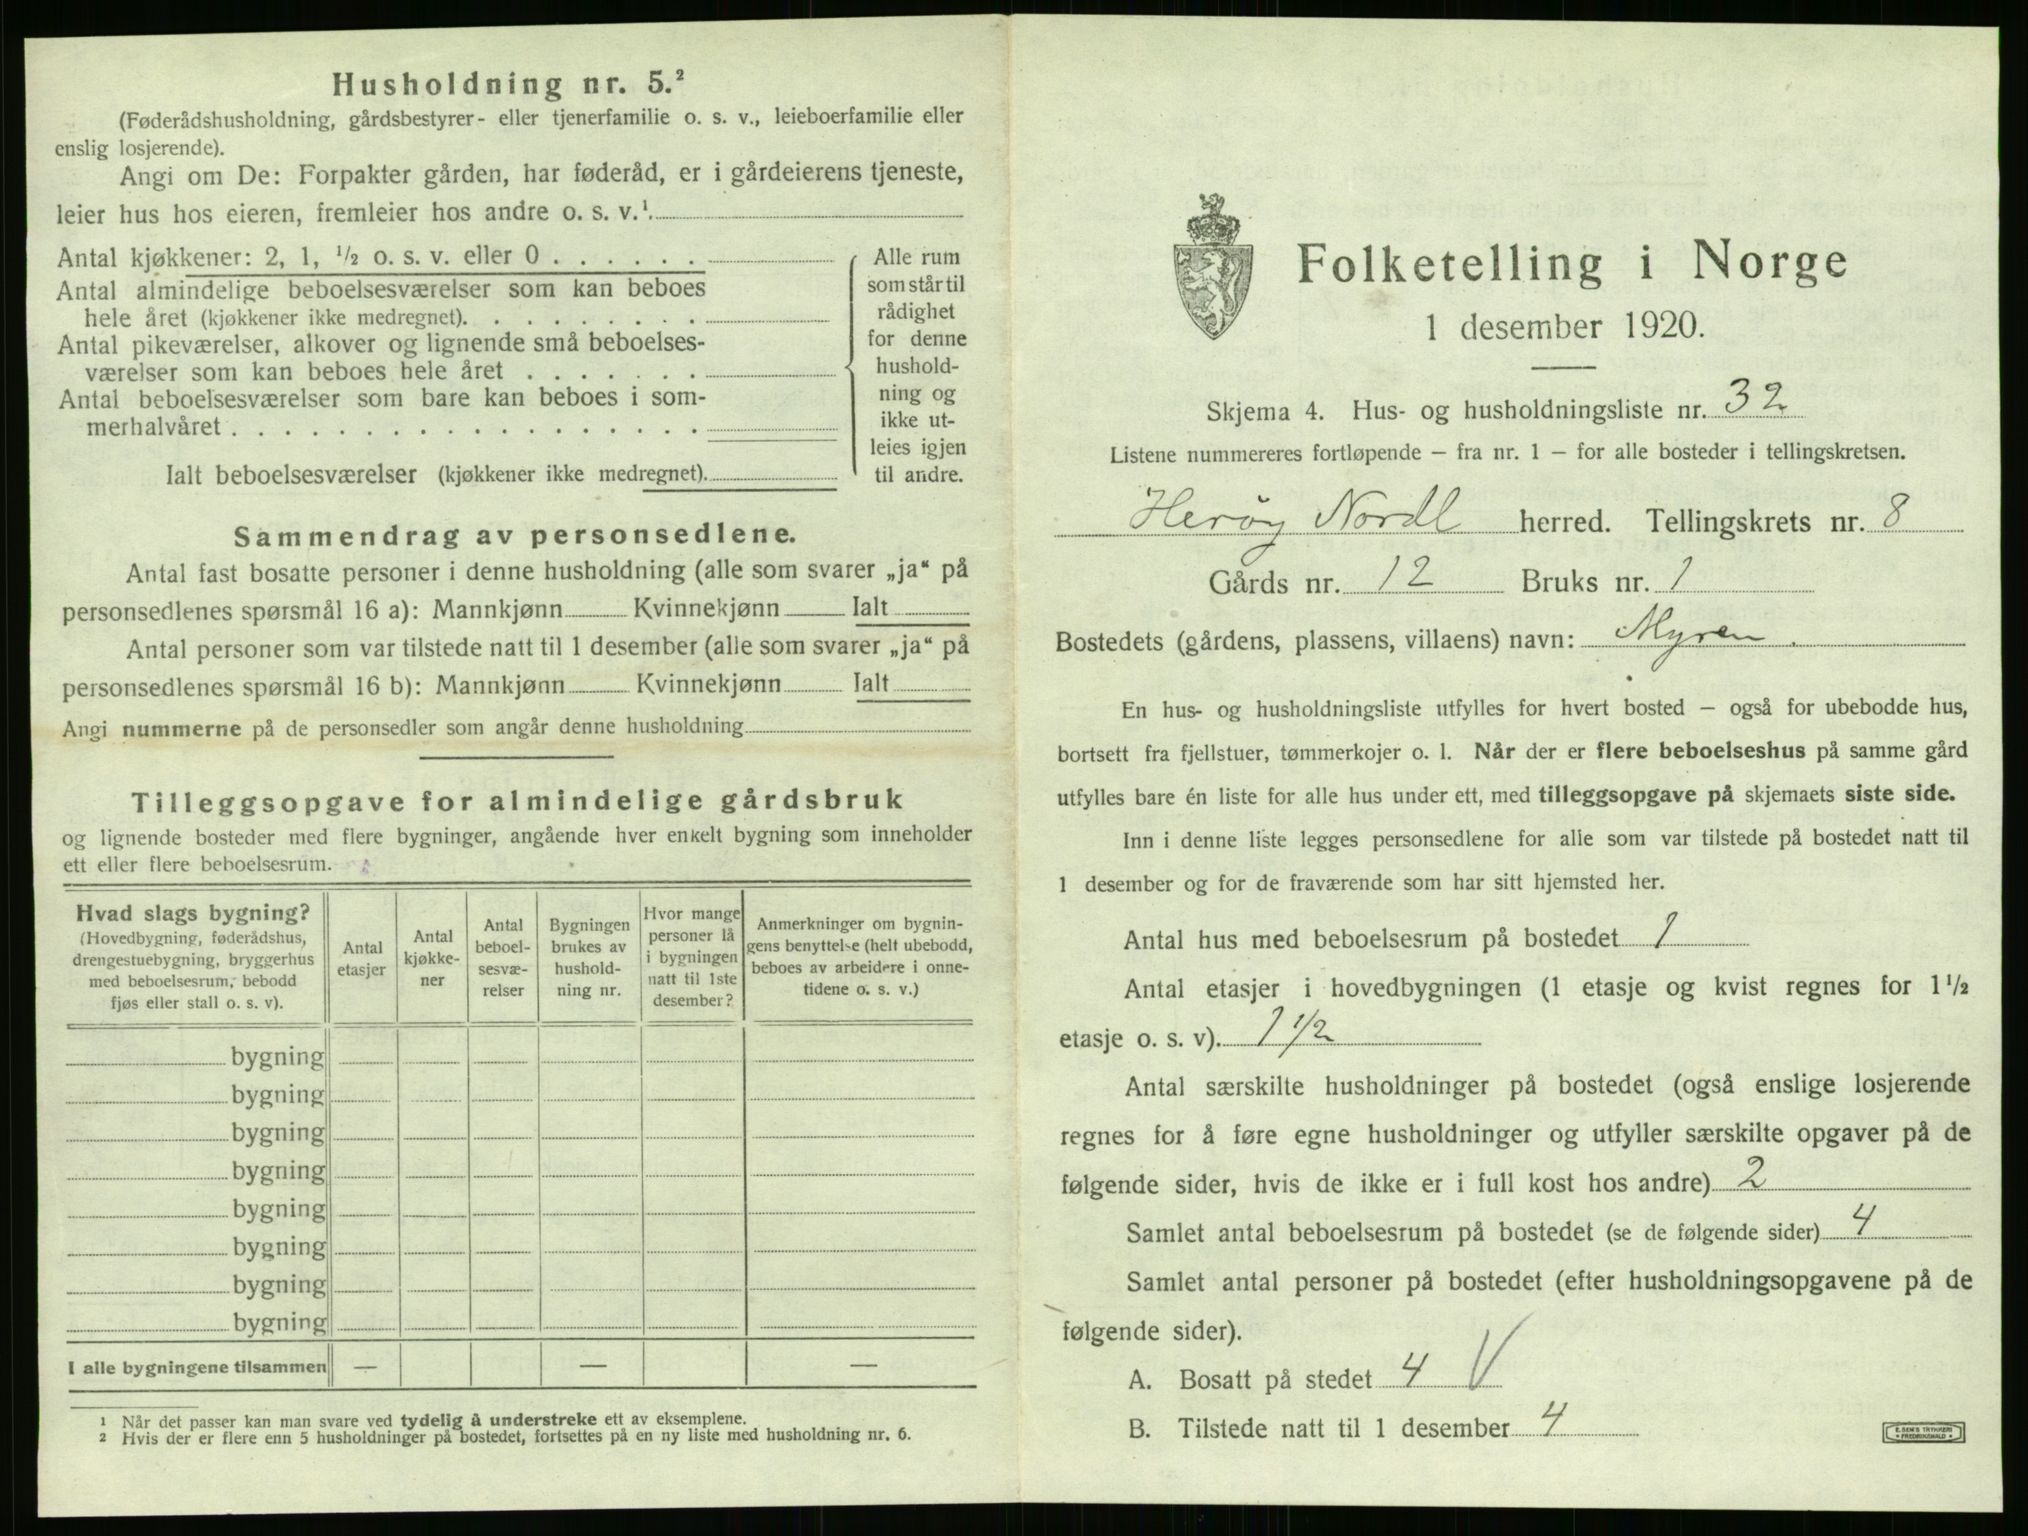 Husholdning nr. 5.²
(Føderådshusholdning, gårdsbestyrer- eller tjenerfamilie o. s. v., leieboerfamilie eller
enslig losjerende).
Angi om De: Forpakter gården, har føderåd, er i gårdeierens tjeneste,
leier hus hos eieren, fremleier hos andre o. s. v.¹
Antal kjøkkener: 2, 1, ½ o. s. v. eller 0 . . . . . .
Antal almindelige beboelsesværelser som kan beboes
hele året (kjøkkener ikke medregnet). . . . . . . . .
Antal pikeværelser, alkover og lignende små beboelses-
værelser som kan beboes hele året . . . . . . .
Antal beboelsesværelser som bare kan beboes i som-
merhalvåret . . . . . . . . . . . . . . . . . .
Ialt beboelsesværelser (kjøkkener ikke medregnet).
Alle rum
som står til
rådighet
for denne
hushold-
ning og
ikke ut-
leies igjen
til andre.
Sammendrag av personsedlene.
Antal fast bosatte personer i denne husholdning (alle som svarer „ja“ på
personsedlenes spørsmål 16 a): Mannkjønn Kvinnekjønn Ialt
Antal personer som var tilstede natt til 1 desember (alle som svarer „ja“ på
personsedlenes spørsmål 16 b): Mannkjønn Kvinnekjønn Ialt
Angi nummerne på de personsedler som angår denne husholdning
Tilleggsopgave for almindelige gårdsbruk
og lignende bosteder med flere bygninger, angående hver enkelt bygning som inneholder
ett eller flere beboelsesrum.
Hvad slags bygning?
(Hovedbygning, føderådshus,
drengestuebygning, bryggerhus
med beboelsesrum, bebodd
fjøs eller stall o. s. v).
Antal
etasjer
Antal
kjøkke-
ner
Antal
beboel-
sesvæ-
relser
Bygningen
brukes av
hushold-
ning nr.
Hvor mange
personer lå
i bygningen
natt til 1ste
desember?
Anmerkninger om bygnin-
gens benyttelse (helt ubebodd,
beboes av arbeidere i onne-
tidene o. s. v.)
bygning
bygning
bygning
bygning
bygning
bygning
bygning
bygning
I alle bygningene tilsammen — — —
¹ Når det passer kan man svare ved tydelig å understreke ett av eksemplene.
² Hvis der er flere enn 5 husholdninger på bostedet, fortsettes på en ny liste med husholdning nr. 6.
Folketelling i Norge
1 desember 1920.
Skjema 4. Hus- og husholdningsliste nr. 32
Listene nummereres fortløpende — fra nr. 1 — for alle bosteder i tellingskretsen.
Herøy Nordl herred. Tellingskrets nr. 8
Gårds nr. 12 Bruks nr. 1
Bostedets (gårdens, plassens, villaens) navn: Myren.
En hus- og husholdningsliste utfylles for hvert bosted — også for ubebodde hus,
bortsett fra fjellstuer, tømmerkojer o. l. Når der er flere beboelseshus på samme gård
utfylles bare én liste for alle hus under ett, med tilleggsopgave på skjemaets siste side.
Inn i denne liste legges personsedlene for alle som var tilstede på bostedet natt til
1 desember og for de fraværende som har sitt hjemsted her.
Antal hus med beboelsesrum på bostedet 1
Antal etasjer i hovedbygningen (1 etasje og kvist regnes for 1½
etasje o. s. v). 1 1/2
Antal særskilte husholdninger på bostedet (også enslige losjerende
regnes for å føre egne husholdninger og utfyller særskilte opgaver på de
følgende sider, hvis de ikke er i full kost hos andre) 2
Samlet antal beboelsesrum på bostedet (se de følgende sider) 4
Samlet antal personer på bostedet (efter husholdningsopgavene på de
følgende sider).
A. Bosatt på stedet 4 V
B. Tilstede natt til 1 desember 4
E. SEM'S TRYKKERI
FREDRIKSHALD